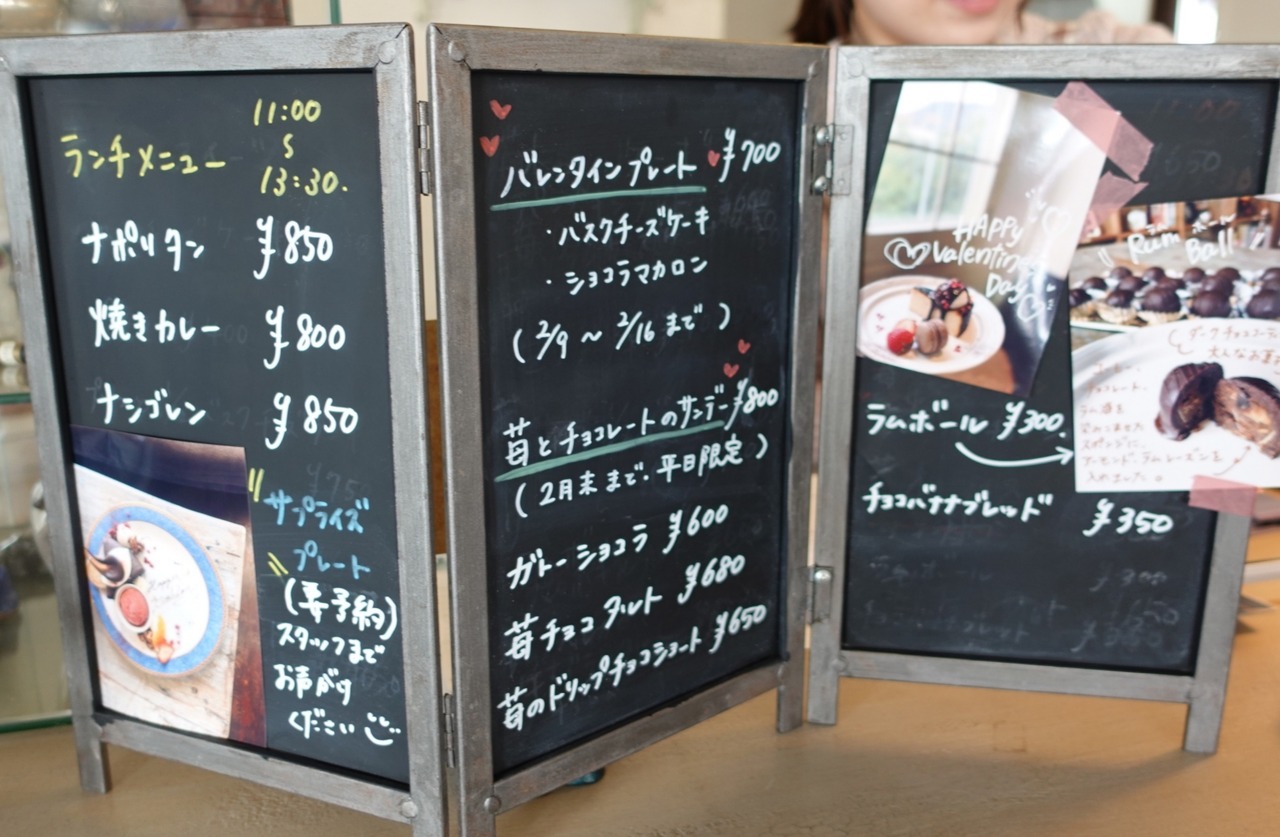 ランチメニュー
11:00
〜
13:30.
ナポリタン ¥850
焼きカレー ¥800
ナシゴレン ¥850
サプライズ
プレート
(要予約)
スタッフまで
お声がけ
ください
バレンタインプレート ¥700
・バスクチーズケーキ
・ショコラマカロン
(2/9 〜 2/16 まで)
苺とチョコレートのサンデー ¥800
(2月末まで.平日限定)
ガトーショコラ ¥600
苺チョコタルト ¥680
苺のドリップチョコショート ¥650
HAPPY
Valentine's
Day
ラムボール ¥300
チョコバナナブレッド ¥350
ラム ボール
Rum Ball
ダークチョコ
大人なお菓
チョコレート、
ラム酒を
スポンジに、
アーモンド、ラムレーズンを
入れました。